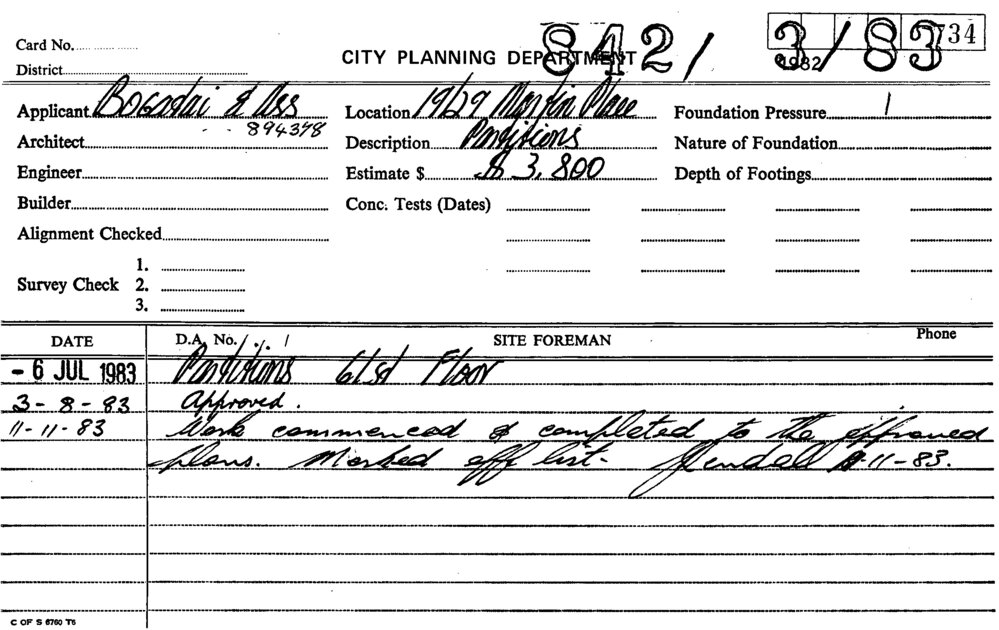 Card No. 842/ 3/83 734
CITY PLANNING DEPARTMENT 1982
District
Applicant & Ass Location 19/29 Martin Place Foundation Pressure
894378
Architect Description Partitions Nature of Foundation
Engineer Estimate $ $ 3,800 Depth of Footings
Builder Conc. Tests (Dates)
Alignment Checked
1.
Survey Check 2.
3.
DATE D.A. No. SITE FOREMAN Phone
- 6 JUL 1983 Partitions 61st Floor
3-8-83 Approved.
11-11-83 Work commenced & completed to the approved
plans. Marked off list. 11-83.
C OF S 6760 T6